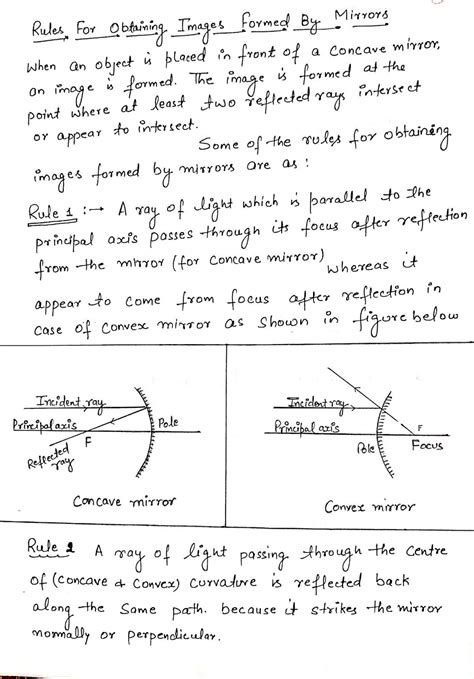 Rules For Obtaining Images Formed By Mirrors
When an object is placed in front of a concave mirror,
an image is formed. The image is formed at the
point where at least two reflected rays intersect
or appear to intersect.
Some of the rules for obtaining
images formed by mirrors are as :
Rule 1 :→ A ray of light which is parallel to the
principal axis passes through its focus after reflection
from the mirror (for concave mirror) whereas it
appear to come from focus after reflection in
case of convex mirror as shown in figure below
Incident ray
Principal axis
Pole
F
Reflected
ray
Concave mirror
Incident ray
Principal axis
F
Pole
Focus
Convex mirror
Rule 2 A ray of light passing through the centre
of (concave & convex) curvature is reflected back
along the same path. because it strikes the mirror
normally or perpendicular.